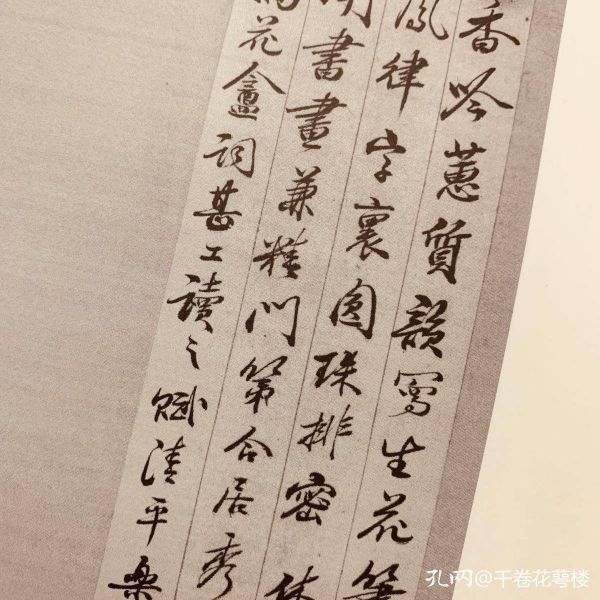 香吟蕙質韻寫生花筆
鳳律字裏圓珠排密休
書畫兼精門第合居秀
花盦詞甚工讀之賦清平樂
孔网@千卷花萼楼